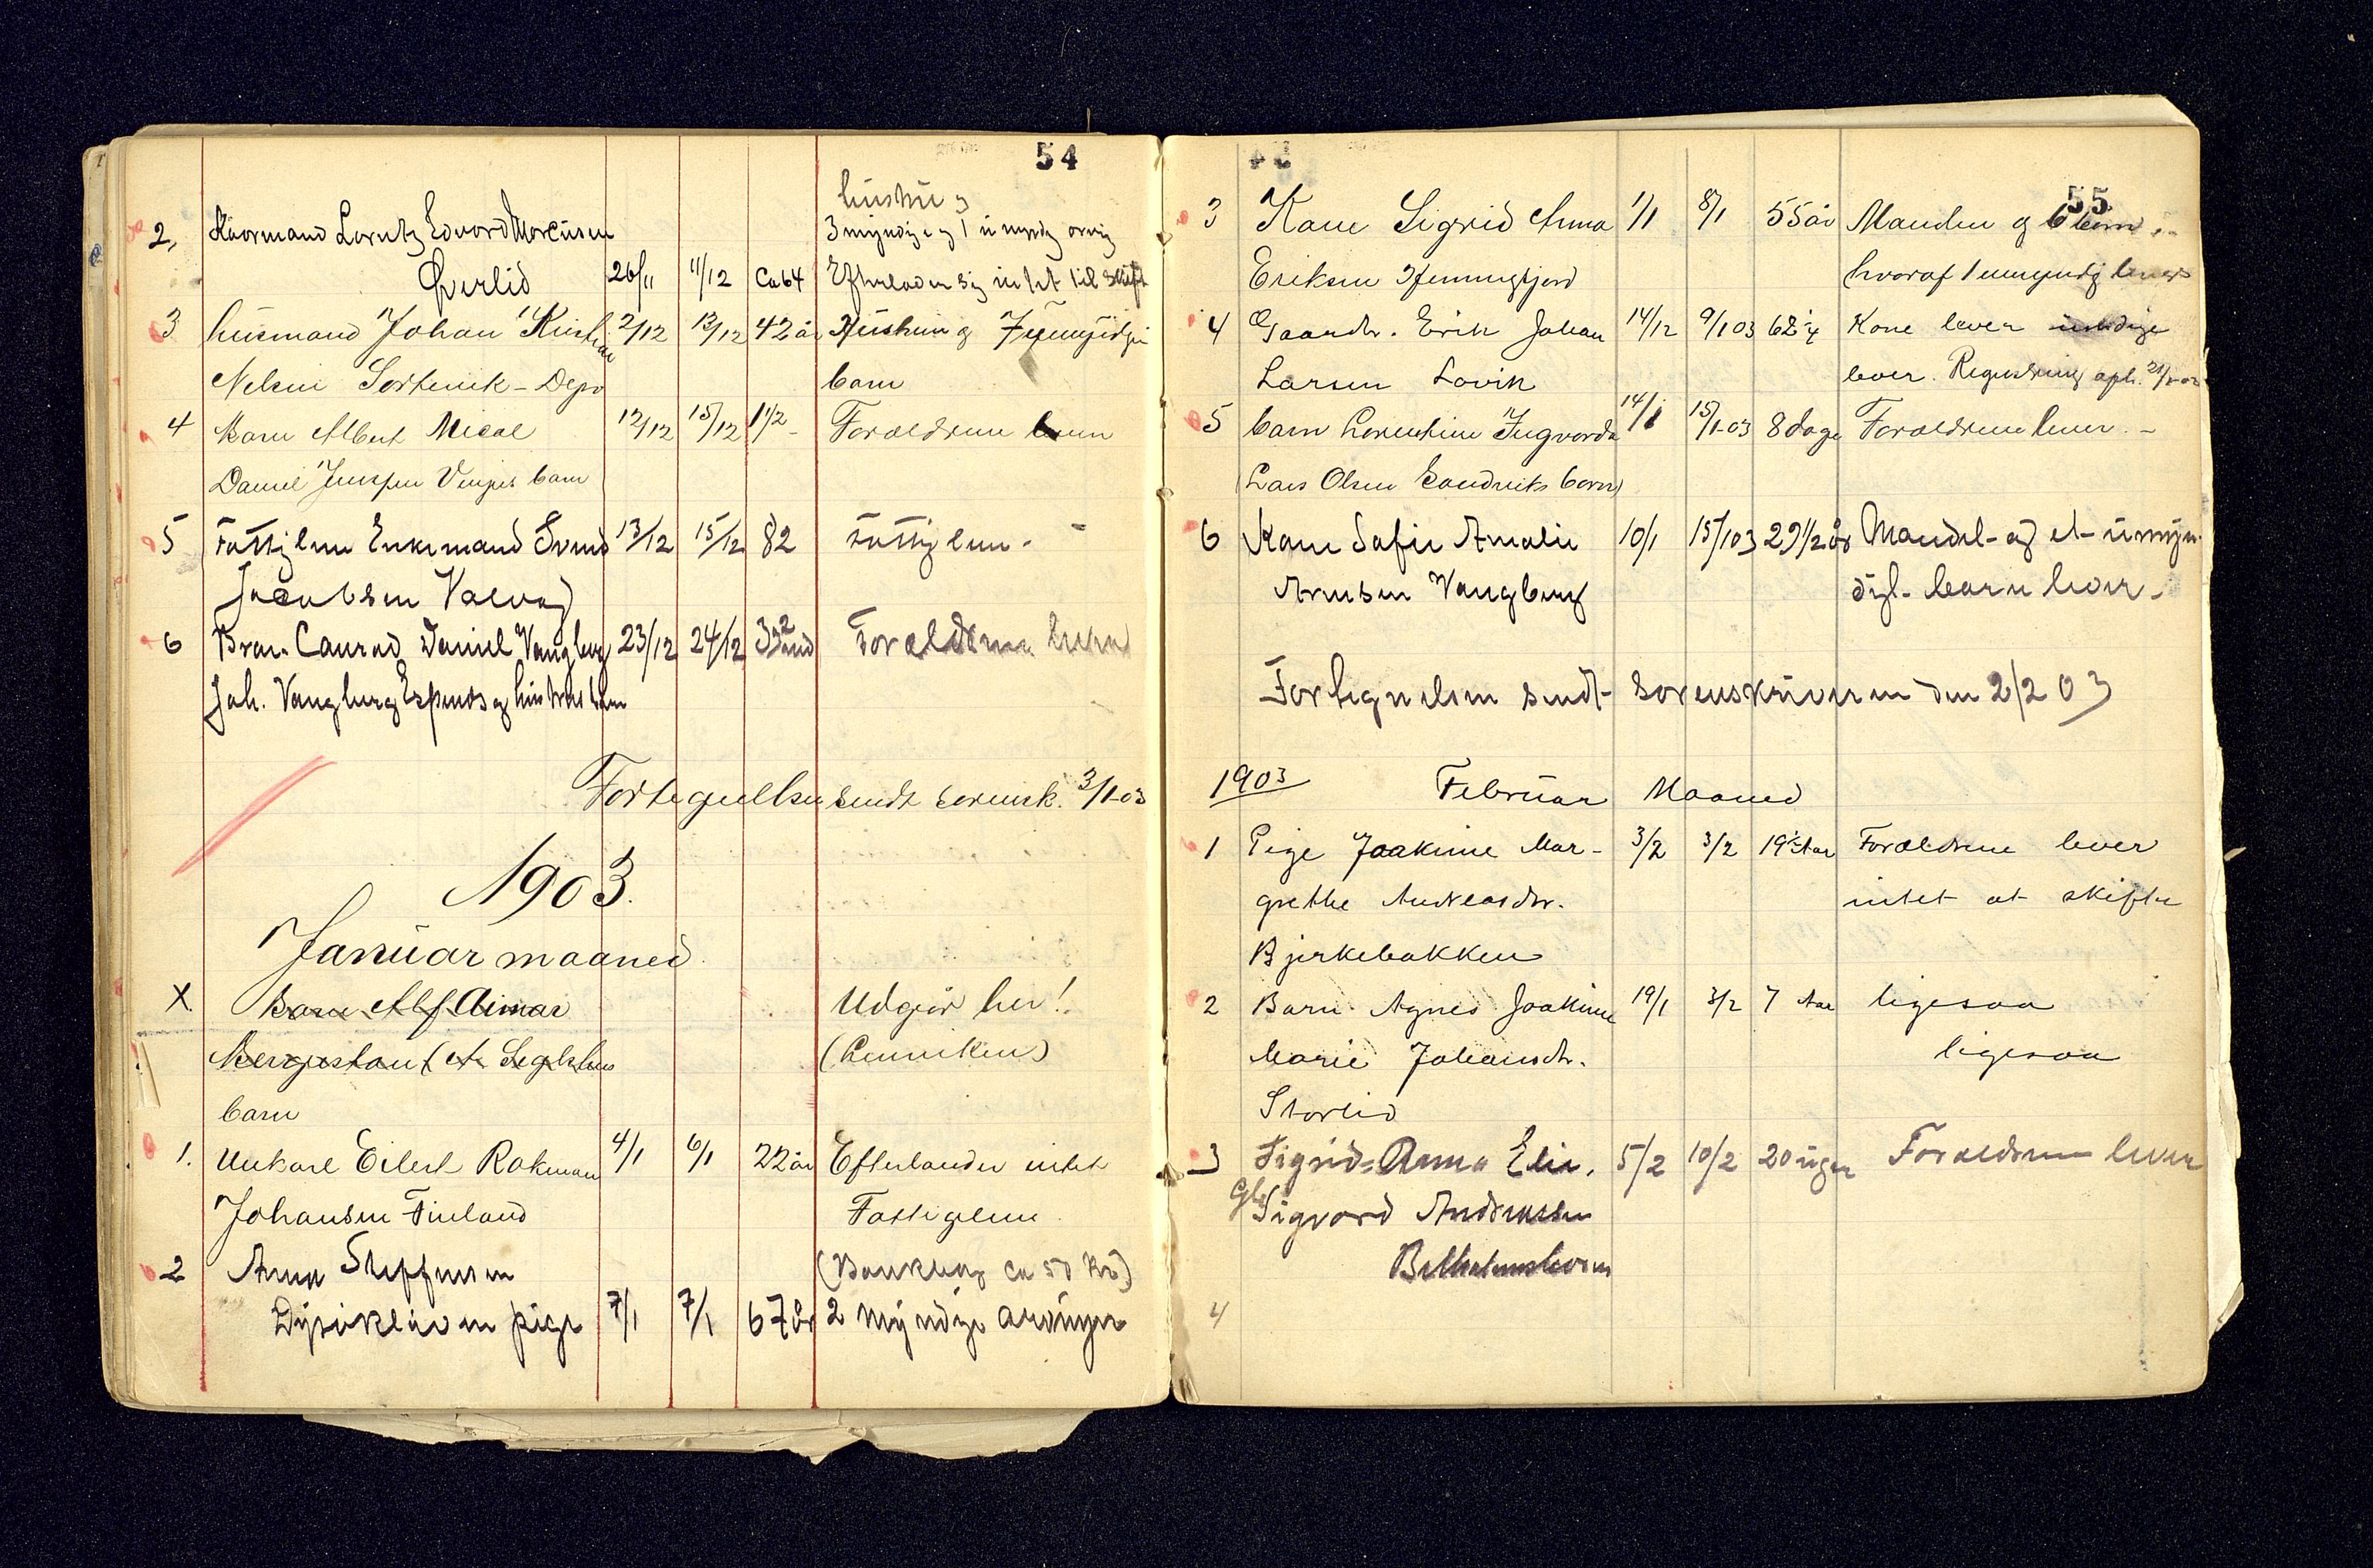 54
hustru og
2, Kaarmand Lorentz Edvord Morcusen 3 myndige og 1 umyndig arving
Øverlid 26/11 11/12 Ca 64 Efterlader sig intet til skift
3 husmand Johan Kristian 2/12 13/12 42 år Hustru og 7 umyndige
Nelsen Sørlenik - Depo barn
4 Barn Albert Mical 12/12 15/12 1 1/2 Forældrene leven
Daniel Jenssen Vinjes barn
5 Fattiglem Enkemand Svend 13/12 15/12 82 Fattiglem -
Jacobsen Valvaag
6 Barn Conrad Daniel Vangberg 23/12 24/12 Forældrene lever
Joh. Vangberg Espenes og hustrus barn
Fortegnelsen sendt sorensk. 3/1-03
1903.
Januar maaned
X. Barn Alf Aimar Udgår her!
Bergestau (A. barn (Lenviken)
barn
1. Unkarl Eilert Rokman 4/1 6/1 22 år Efterlander intet
Johansen Finland Fattiglem
2 Anna Steffensen (Bankbog ca 50 Kr)
Dysikleiven pige 7/1 7/1 67 år 2 Myndige arvinger
55
3 Kone Sigrid Anna 1/1 8/1 55 år Manden og 6 børn
Eriksen Hemmingfjord hvoraf 1 umyndig lever
4 Gaardbr. Erik Johan 14/12 9/1 03 62 1/4 Kone lever
Larsen Lovik lever. Registrering oph. 21/1-03
5 barn Lorentine Ingvarda 14/1 15/1-03 8 dage Forældrene lever -
(Lars Olsen Sandviks barn)
6 Kone Sofie Amalie 10/1 15/1 03 29 1/2 år Mandel- og et umyn-
Arnesen Vangberg digt barn lever -
Fortegnelsen sendt Sorenskriveren den 2/2 03
1903 Februar Maaned
1 Pige Joakime Mar- 3/2 3/2 19 1/2 Aar Forældrene lever
grethe Andreasdtr. intet at skifte
Bjerkebakken
2 Barn Agnes Joakime 19/1 3/2 7 Aar ligesaa
Marie Johansdtr. ligesaa
Storlid
3 Sigrid Anna Elie. 5/2 10/2 20 uger Forældrene lever
Sigvard Andreassen
4